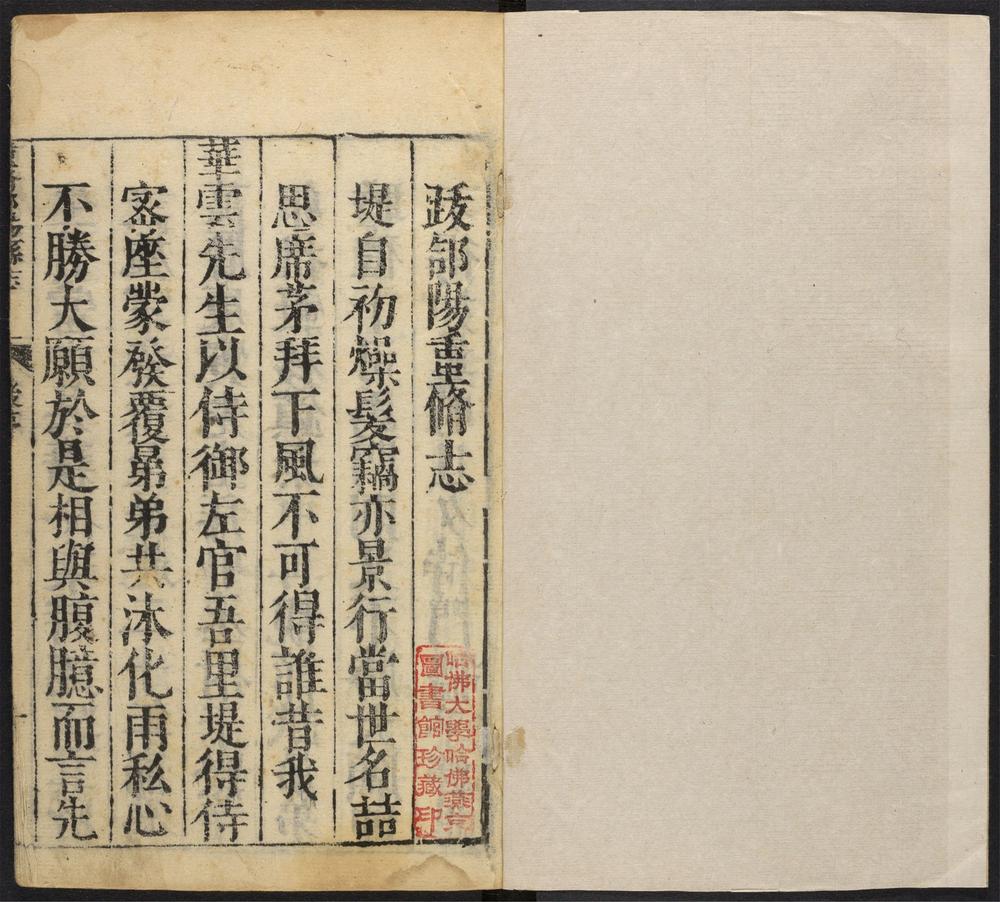 跋郃陽重脩志
堤自初燥髮竊亦景行當世名喆
思席茅拜下風不可得誰昔我
華雲先生以侍御左官吾里堤得侍
宻座蒙發覆曻弟共沐化雨私心
不勝大願於是相與腹臆而言先
哈佛大學哈佛燕京
圖書館珍藏印